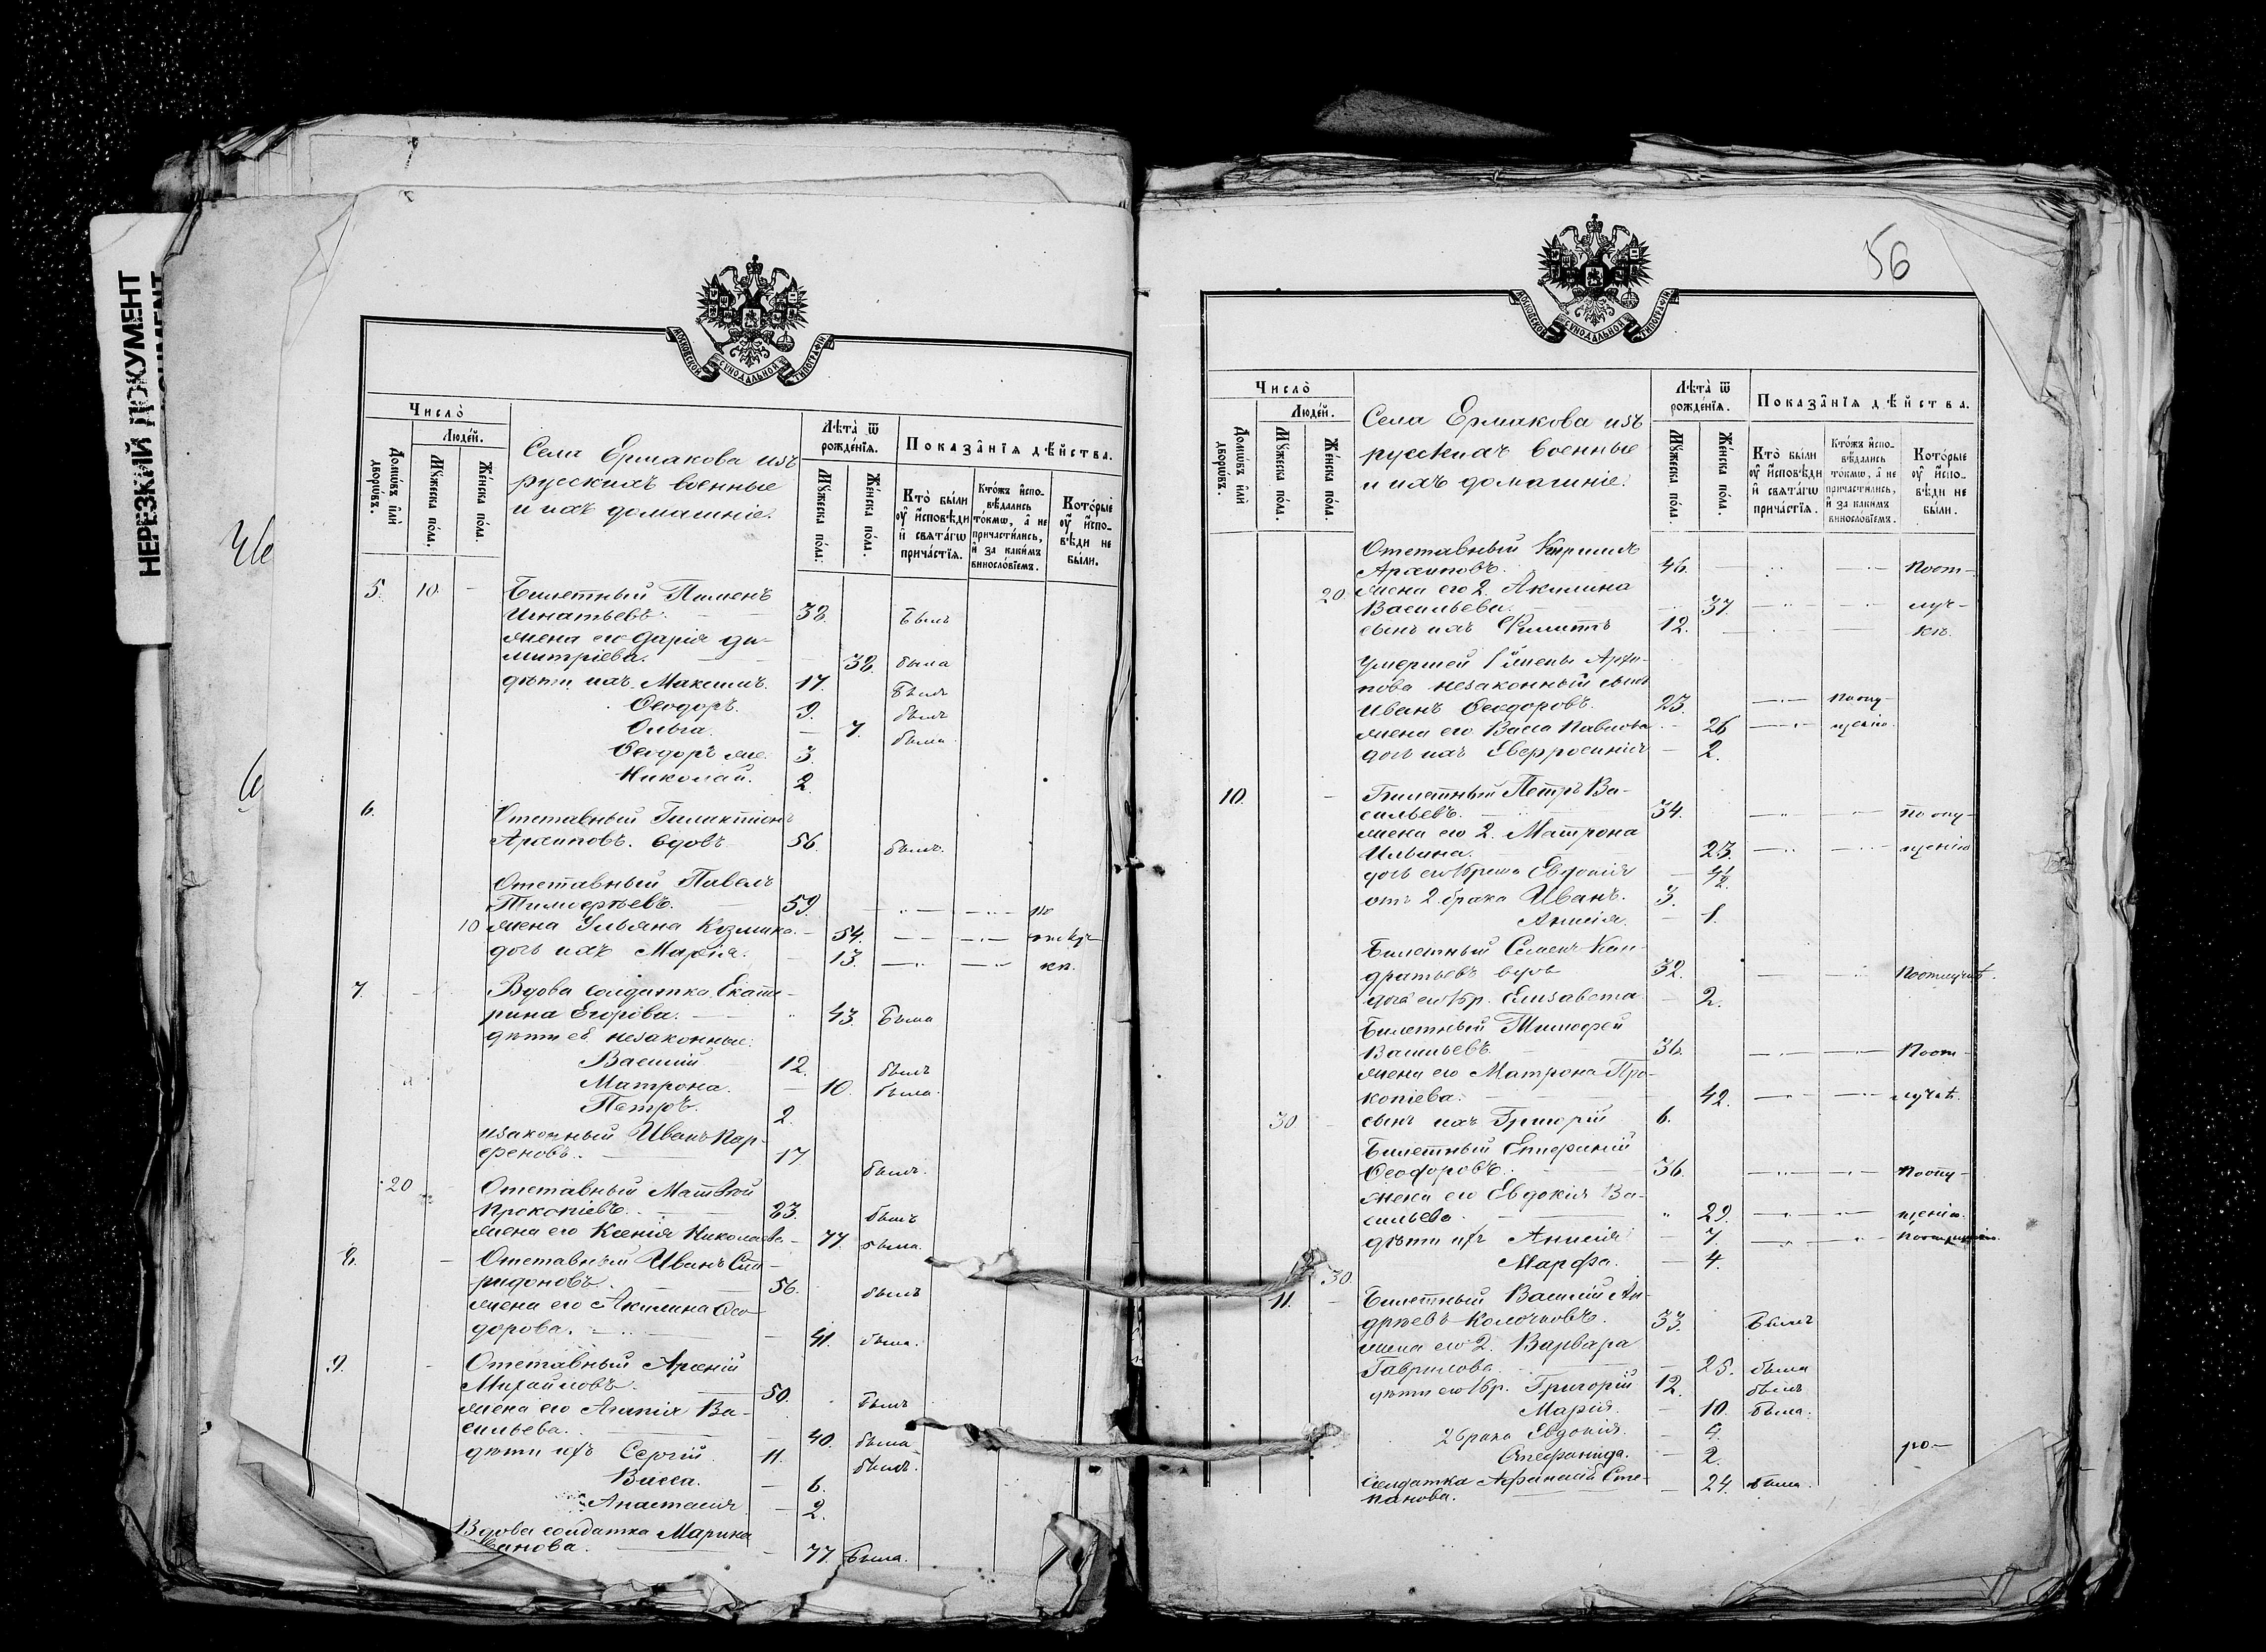 НЕРЕЗКИЙ ДОКУМЕНТ
МОСКОВСКОЙ СѴНОДАЛЬНОЙ ТИПОГРАФІИ
Число̀
Людей.
Домѡвъ илѝ дворѡвъ.
Мꙋжеска пола.
Женска пола.
Села Ермакова изъ
русскихъ военные
и ихъ домашніе.
Лѣта̀ ѿ рожденїѧ.
Мꙋжеска пола.
Женска пола.
Показанїѧ дѣйства.
Кто̀ были оу̓ исповѣди и свѧтагѡ причастїѧ.
Ктожъ испо-
вѣдались
токмѡ, а не
причастились,
и за какимъ
винословїемъ.
Которые
оу̓ испо-
вѣди не
были.
5. 10. - Билетный Пименъ
Игнатьевъ. 38. былъ
жена его Дарія Ди-
митріева. 38. была
дѣти ихъ Максимъ. 17. былъ
Ѳеодоръ. 9. былъ
Ольга. - 7. была
Ѳеодоръ же. 3.
Николай. 2.
6. Отставный Галактіонъ
Архиповъ. вдовъ 56. былъ.
Отставный Павелъ
Тимофеевъ. 59. по
10 жена Ульяна Козмина. - 54. отлуч-
дочь ихъ Марія. - 13. кѣ.
7. Вдова солдатка Екате-
рина Егорова. 43. была
дѣти её незаконные:
Василій 12. былъ
Матрона. - 10. была.
Петръ. 2.
незаконный Иванъ Пар-
феновъ. 17. былъ.
20 Отставный Матвѣй
Прокопіевъ. 83. былъ
жена его Ксенія Николаева - 77. была.
8. - Отставный Иванъ Спи-
ридоновъ. 56. былъ
жена его Акилина Ѳео-
дорова. - 41. была.
9. - Отставный Арсеній
Михайловъ. 50. былъ
жена его Агапія Ва-
сильева. - 40. была
дѣти ихъ Сергій. 11. былъ.
Васса. - 6.
Анастасія - 2.
Вдова солдатка Марина
Иванова. - 77. была.
56
МОСКОВСКОЙ СѴНОДАЛЬНОЙ ТИПОГРАФІИ
Число̀
Людей.
Домѡвъ илѝ дворѡвъ.
Мꙋжеска пола.
Женска пола.
Села Ермакова изъ
русскихъ военные
и ихъ домашніе.
Лѣта̀ ѿ рожденїѧ.
Мꙋжеска пола.
Женска пола.
Показанїѧ дѣйства.
Кто̀ были
оу̓ исповѣди
и свѧтагѡ
причастїѧ.
Ктожъ испо-
вѣдались
токмѡ, а не
причастились,
и за какимъ
винословїемъ.
Которые
оу̓ испо-
вѣди не
были.
Отставный Кирилъ
Архиповъ. 46. Поот-
20. жена его 2. Акилина
Васильева. 37. луч-
сынъ ихъ Филипъ 12. кѣ.
умершей Архи-
пова незаконный сынъ
Иванъ Ѳеодоровъ. 23. По опу-
жена его Васса Павлова - 26 щенію.
дочь ихъ Евфросинія - 2.
10. - Билетный Петръ Ва-
сильевъ. 34. По опу-
жена его 2. Матрона
Ильина. 23. щенію
дочь его 1 брака Евдокія - 4½
отъ 2. брака Иванъ. 3.
Анисія. - 1.
Билетный Семенъ Кон-
дратьевъ вдовъ 32. Поотлучкѣ.
дочь его 1 бр. Елизавета - 2.
Билетный Тимофей
Васильевъ. 36. Поот-
жена его Матрона Про-
копіева. 42. лучкѣ.
30 сынъ ихъ Григорій 6.
Билетный
Ѳеодоровъ. 36. Поопу-
жена его Евдокія Ва-
сильева. 29. щенію.
дѣти ихъ Анисія - 7.
Марфа. - 4.
30.
11. - Билетный Василій Ан-
дреевъ Колочковъ. 33. былъ
жена его 2. Варвара
Гаврилова. - 25. была
дѣти его 1 бр. Григорій 12. былъ
Марія. - 10. была.
2 брака Евдокія. - 4.
Степанида. - 2.
солдатка Афанасія Сте-
панова. - 24. была.